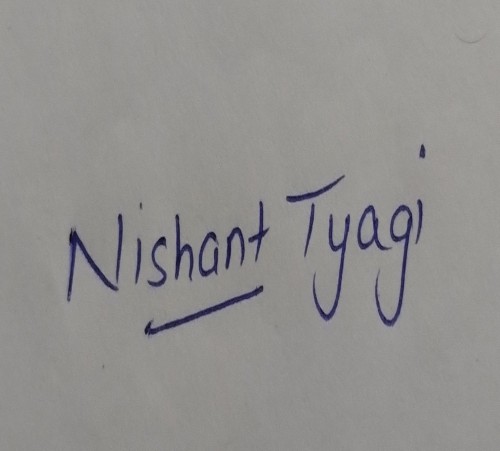 Nishant Tyagi